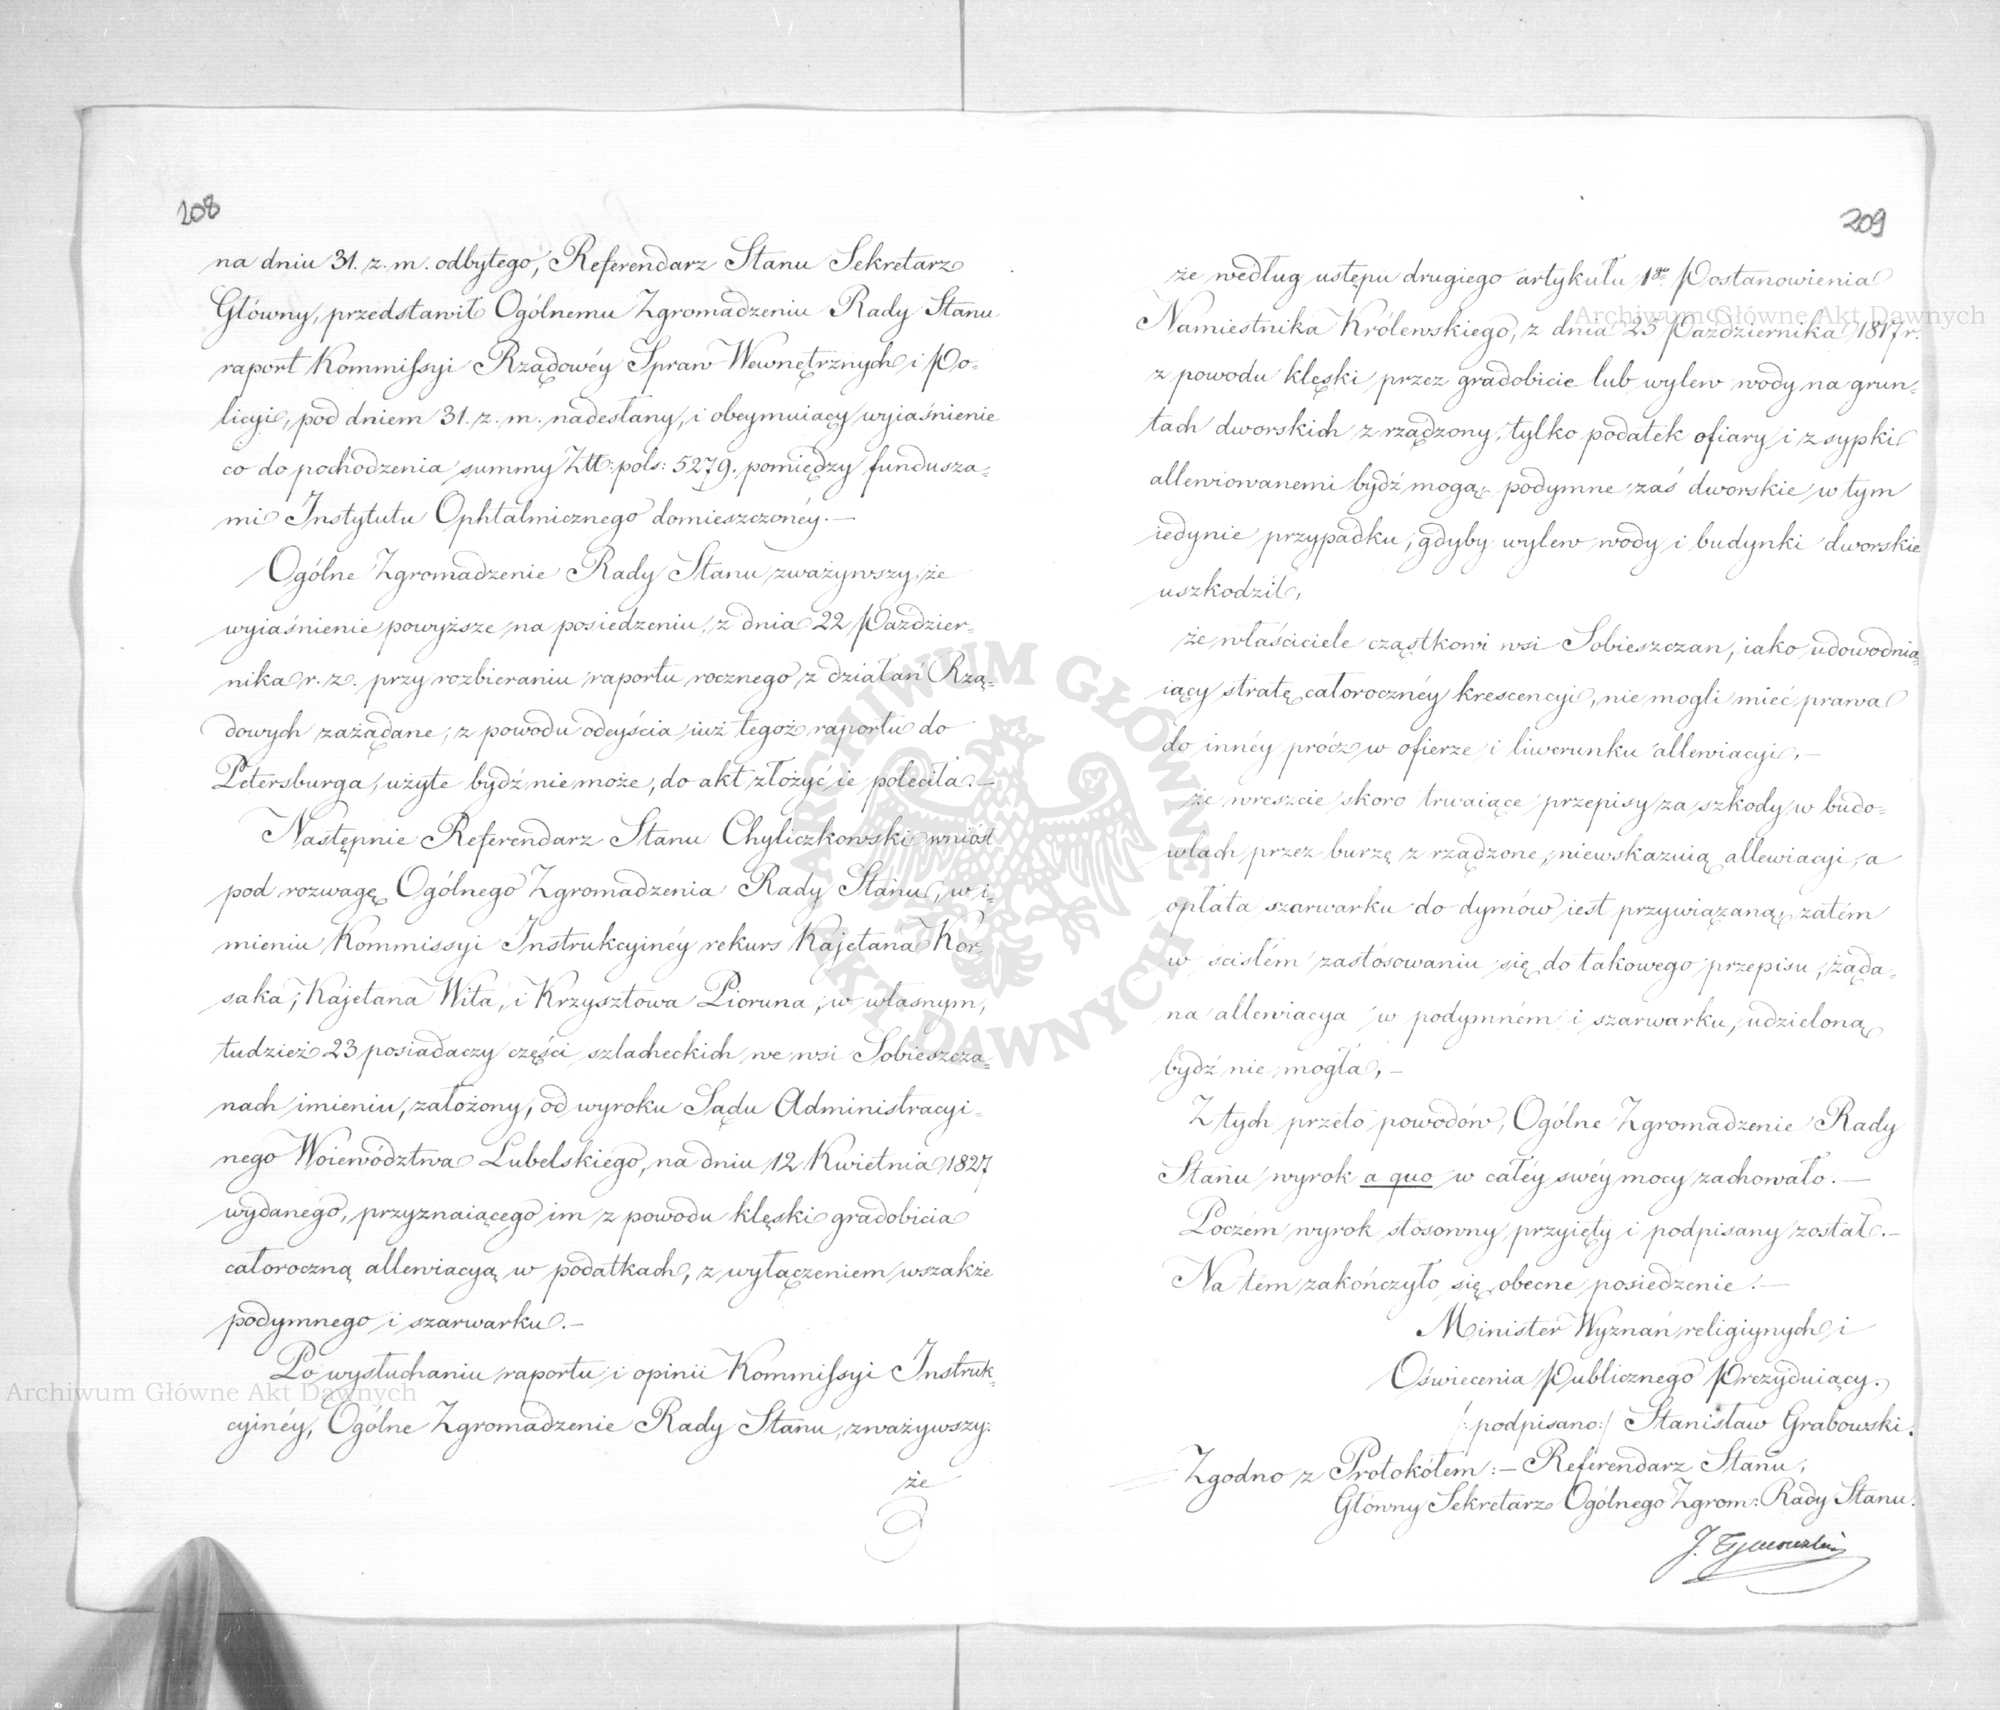 208
na dniu 31. z. m. odbytego, Referendarz Stanu Sekretarz
Główny, przedstawił Ogólnemu Zgromadzeniu Rady Stanu
raport Kommissyi Rządowéy Spraw Wewnętrznych i Po-
licyi, pod dniem 31. z. m. nadesłany, i obeymuiący wyiaśnienie
co do pochodzenia summy Złł: pols: 5279. pomiędzy fundusza-
mi Instytutu Ophtalmicznego domieszczonéy. —
Ogólne Zgromadzenie Rady Stanu, zważywszy, że
wyiaśnienie powyższe na posiedzeniu, z dnia 22 Paździer-
nika r. z. przy rozbieraniu raportu rocznego z działań Rzą-
dowych zażądane, z powodu odeyścia iuż tegoż raportu do
Petersburga, użyte bydź nie może, do akt złożyć ie poleciła. —
Następnie Referendarz Stanu Chyliczkowski wniósł
pod rozwagę Ogólnego Zgromadzenia Rady Stanu, w i-
mieniu Kommissyi Instrukcyinéy rekurs Kajetana Kor-
saka, Kajetana Wita, i Krzysztowa Pioruna, w własnym,
tudzież 23 posiadaczy części szlacheckich we wsi Sobieszcza-
nach imieniu, założony, od wyroku Sądu Administracyi-
nego Woiewództwa Lubelskiego, na dniu 12 Kwietnia 1827
wydanego, przyznaiącego im z powodu klęski gradobicia
całoroczną allewiacyą w podatkach, z wyłączeniem wszakże
podymnego i szarwarku. —
Po wysłuchaniu raportu i opinii Kommissyi Instruk-
cyinéy, Ogólne Zgromadzenie Rady Stanu, zważywszy:
że
209
że według ustępu drugiego artykułu 1go Postanowienia
Namiestnika Królewskiego, z dnia 25 Października 1817 r.
z powodu klęski przez gradobicie lub wylew wody na grun-
tach dworskich zrządzony, tylko podatek ofiary i zsypki
allewiowanemi bydź mogą, podymne zaś dworskie w tym
iedynie przypadku, gdyby wylew wody i budynki dworskie
uszkodził,
że właściciele cząstkowi wsi Sobieszczan, iako udowodnia-
iący stratę całorocznéy krescencyi, nie mogli mieć prawa
do innéy prócz w ofierze i liwerunku allewiacyi, —
że wreszcie skoro trwaiące przepisy za szkody w budo-
wlach przez burzę zrządzone, niewskazuią allewiacyi, a
opłata szarwarku do dymów iest przywiązaną, zatém
w ścisłém zastósowaniu się do takowego przepisu, żąda-
na allewiacya w podymném i szarwarku, udzieloną
bydź nie mogła, —
Z tych przeto powodów, Ogólne Zgromadzenie Rady
Stanu wyrok a quo w całéy swéy mocy zachowało. —
Poczém wyrok stósowny przyięty i podpisany został. —
Na tém zakończyło się obecne posiedzenie. —
Minister Wyznań religiynych i
Oświecenia Publicznego Prezyduiący.
/: podpisano :/ Stanisław Grabowski.
Zgodno z Protokółem: — Referendarz Stanu,
Główny Sekretarz Ogólnego Zgrom: Rady Stanu.
J. Tymowski
Archiwum Główne Akt Dawnych
Archiwum Główne Akt Dawnych
ARCHIWUM GŁÓWNE AKT DAWNYCH